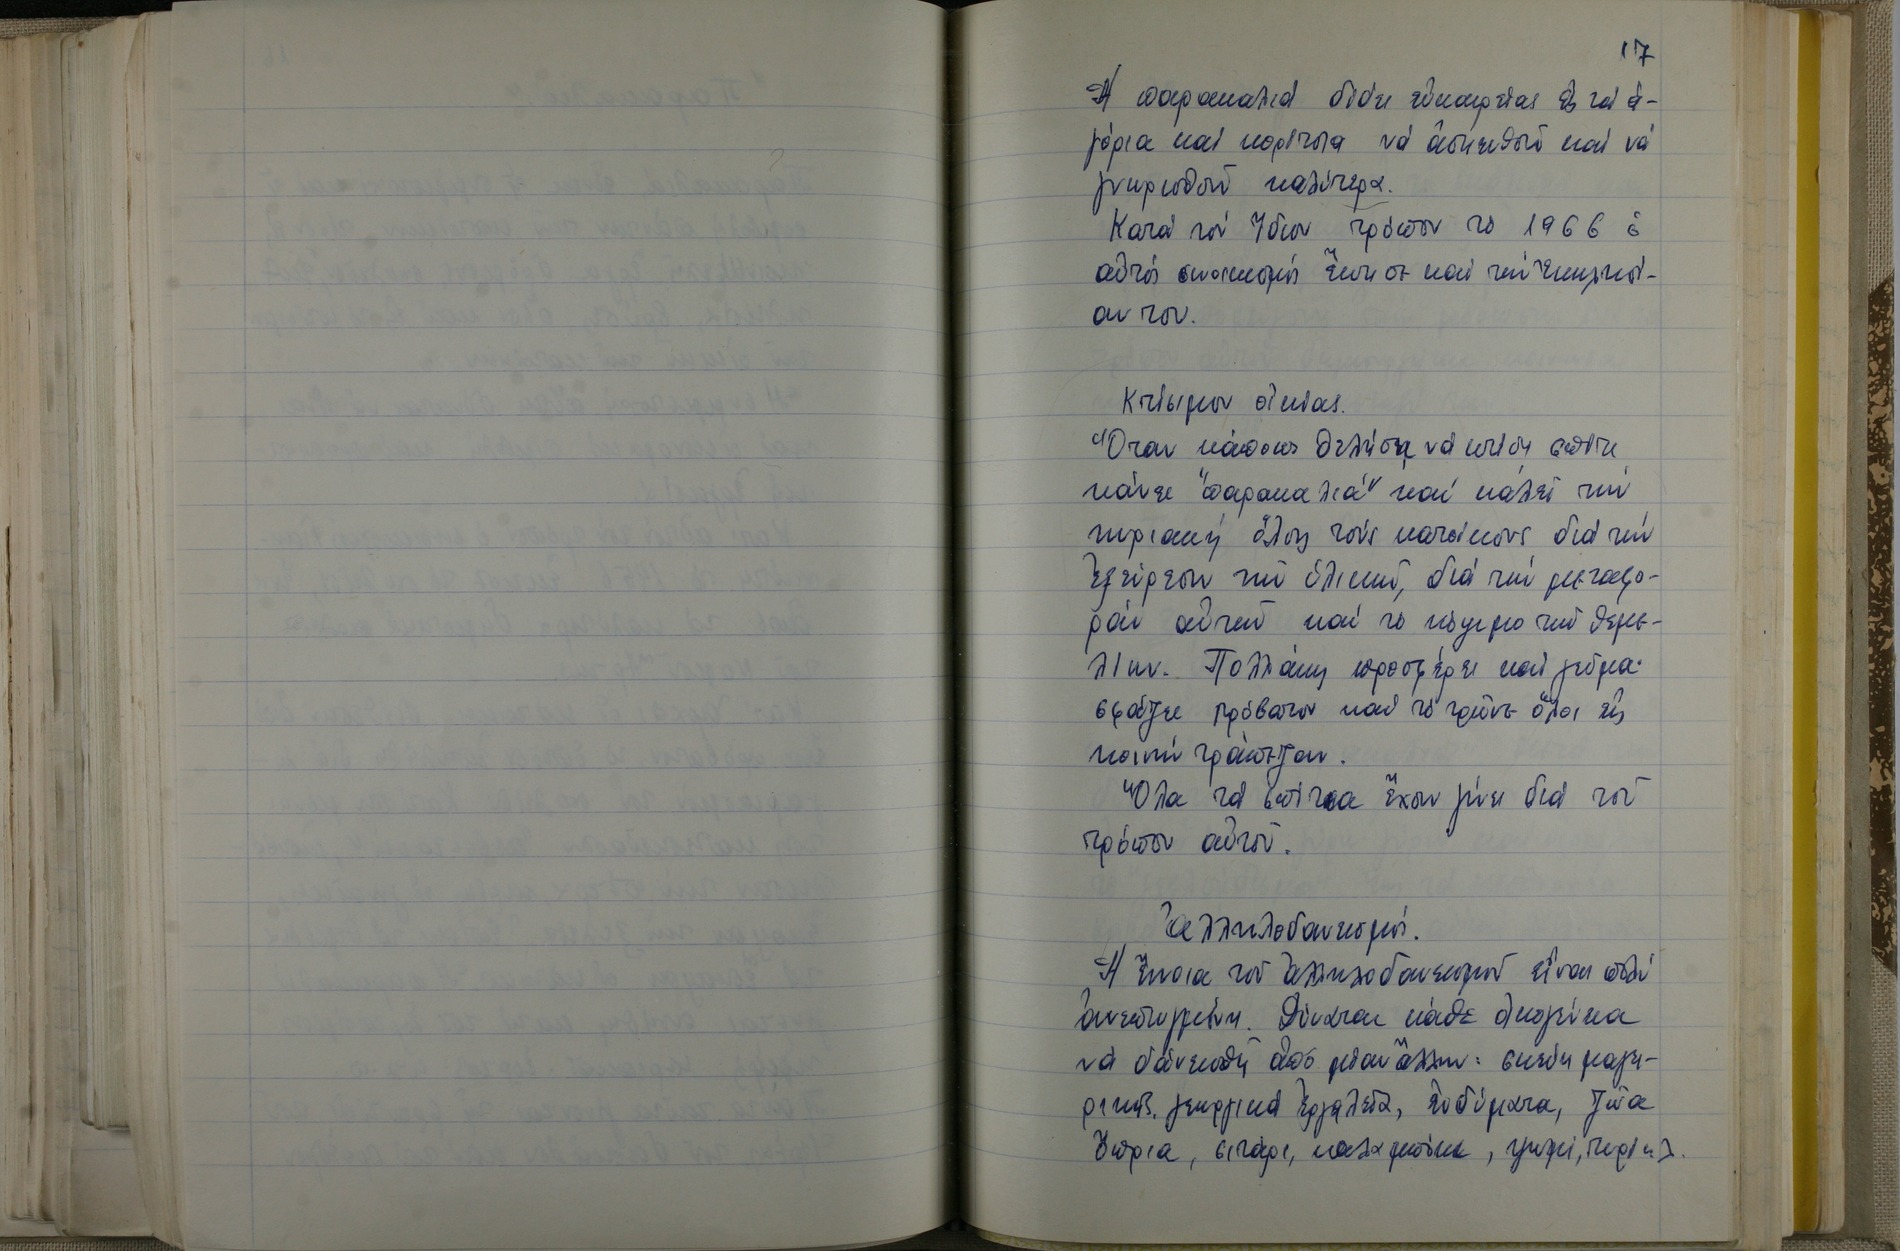 17
Ἡ παρακαλιά δίδει εὐκαιρίας εἰς τά ἀ-
γόρια καί κορίτσια νά ἀσκηθοῦν καί νά
γνωρισθοῦν καλύτερα.
Κατά τόν ἴδιον τρόπον τό 1966 ὁ
αὐτός συνοικισμός ἔκτισε καί τήν Ἐκκλησί-
αν του.
Κτίσιμον οἰκίας.
Ὅταν κάποιος θελήσῃ νά κτίσῃ σπίτι
κάνει "παρακαλιά" καί καλεῖ τήν
κυριακή ὅλους τούς κατοίκους διά τήν
ἐξεύρεσιν τοῦ ὑλικοῦ, διά τήν μεταφο-
ράν αὐτοῦ καί τό κόψιμο τῶν θεμε-
λίων. Πολλάκις προσφέρει καί γεῦμα·
σφάζει πρόβατον καί τό τρῶνε ὅλοι εἰς
κοινήν τράπεζαν.
Ὅλα τά σπίτια ἔχουν γίνει διά τοῦ
τρόπου αὐτοῦ.
Ἀλληλοδανεισμός.
Ἡ ἔννοια τοῦ ἀλληλοδανεισμοῦ εἶναι πολύ
ἀνεπτυγμένη. Δύναται κάθε οἰκογένεια
νά δανεισθῇ ἀπό μίαν ἄλλην: σκεύη μαγει-
ρικῆς, γεωργικά ἐργαλεῖα, ἐνδύματα, ζῶα
ὄσπρια, σιτάρι, καλαμπόκι, ψωμί, τυρί κ.λ.